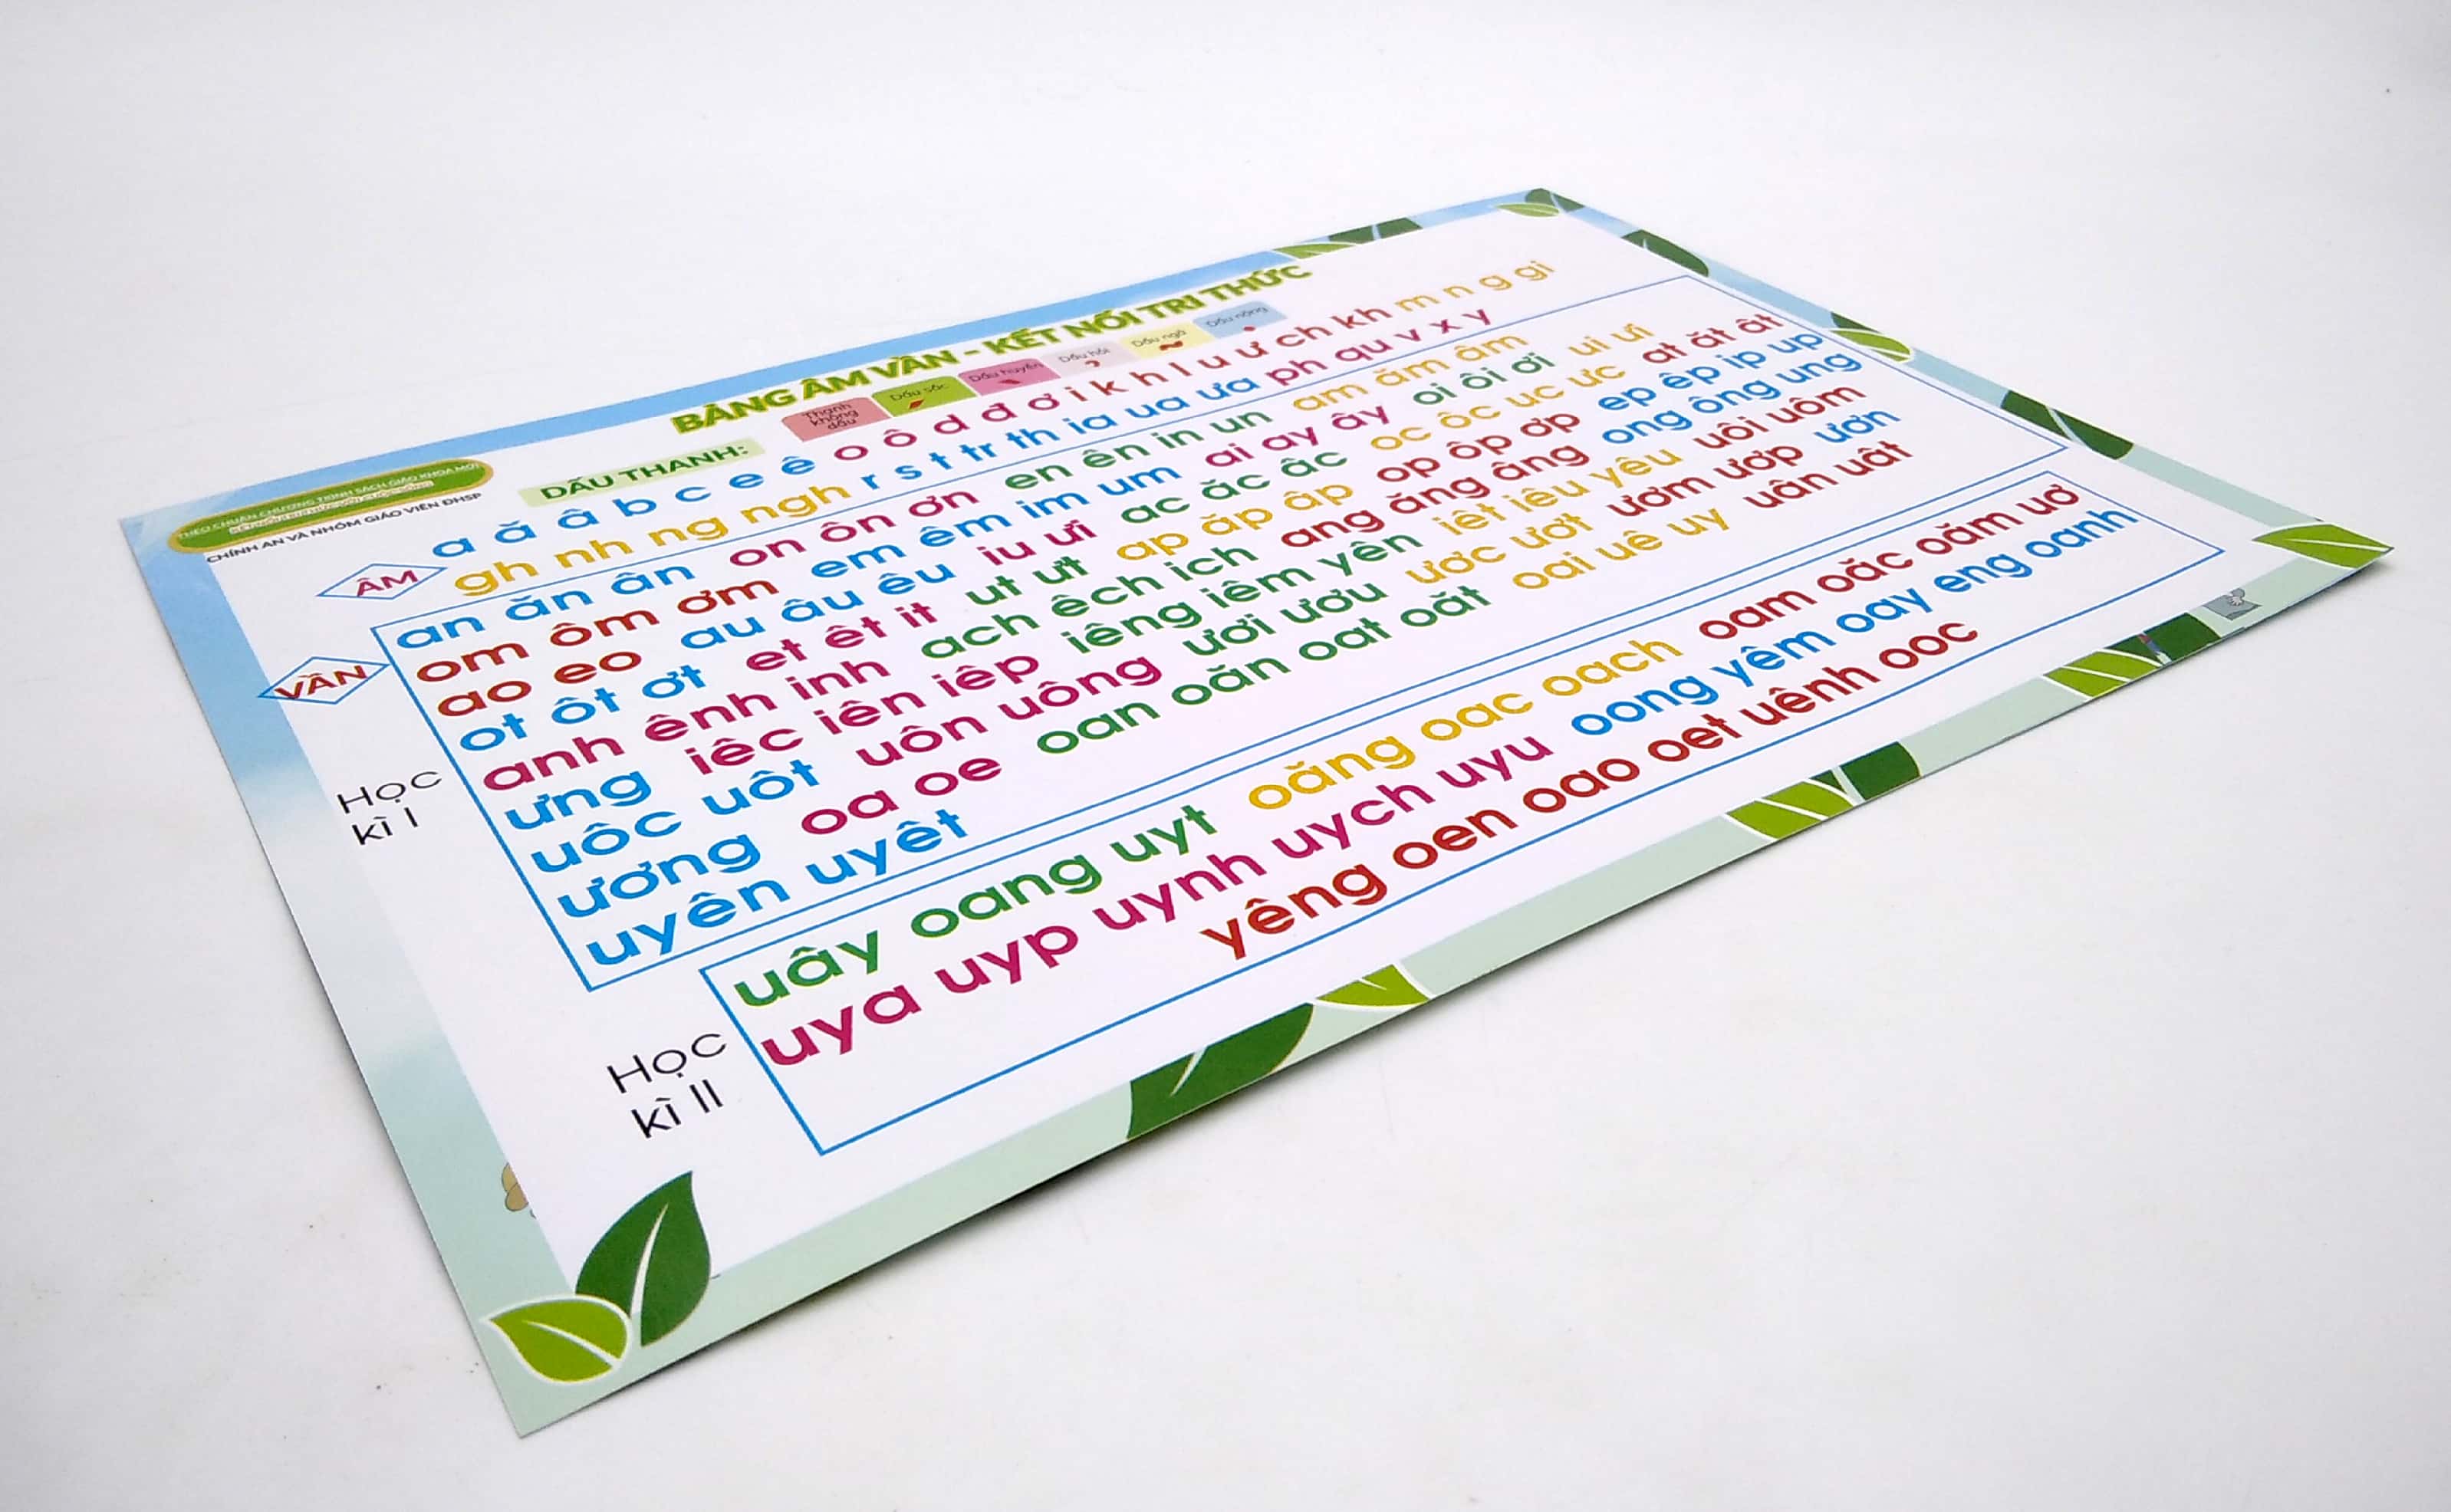 BẢNG ÂM VẦN - KẾT NỐI TRI THỨC
THEO CHUẨN CHƯƠNG TRÌNH SÁCH GIÁO KHOA MỚI
CHÍNH AN VÀ NHÓM GIÁO VIÊN ĐHSP
DẤU THANH: Thanh không dấu Dấu sắc Dấu huyền Dấu hỏi Dấu ngã Dấu nặng
ÂM
a ă â b c e ê o ô d đ ơ i k h l u ư ch kh m n g gi
gh nh ng ngh r s t tr th ia ua ưa ph qu v x y
VẦN
Học kì I
an ăn ân on ôn ơn en ên in un am ăm âm
om ôm ơm em êm im um ai ay ây oi ôi ơi ui ưi
ao eo au âu êu iu ưi ac ăc âc oc ôc uc ưc at ăt ât
ot ôt ơt et êt it ut ưt ap ăp âp op ôp ơp ep êp ip up
anh ênh inh ach êch ich ang ăng âng ong ông ung
ưng iêc iên iêp iêng iêm yên iêt iêu yêu uôi uôm
uôc uôt uôn uông ươi ươu ươc ươt ươm ươp ươn
ương oa oe oan oăn oat oăt oai uê uy uân uât
uyên uyêt
Học kì II
uây oang uyt oăng oac oach oam oăc oăm uơ
uya uyp uynh uych uyu oong yêm oay eng oanh
yêng oen oao oet uênh ooc